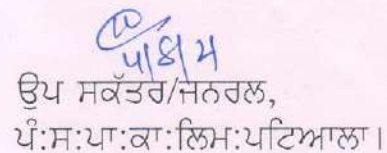 ਉਪ ਸਕੱਤਰ/ਜਨਰਲ,
ਪੰ:ਸ:ਪਾ:ਕਾ:ਲਿਮ:ਪਟਿਆਲਾ।